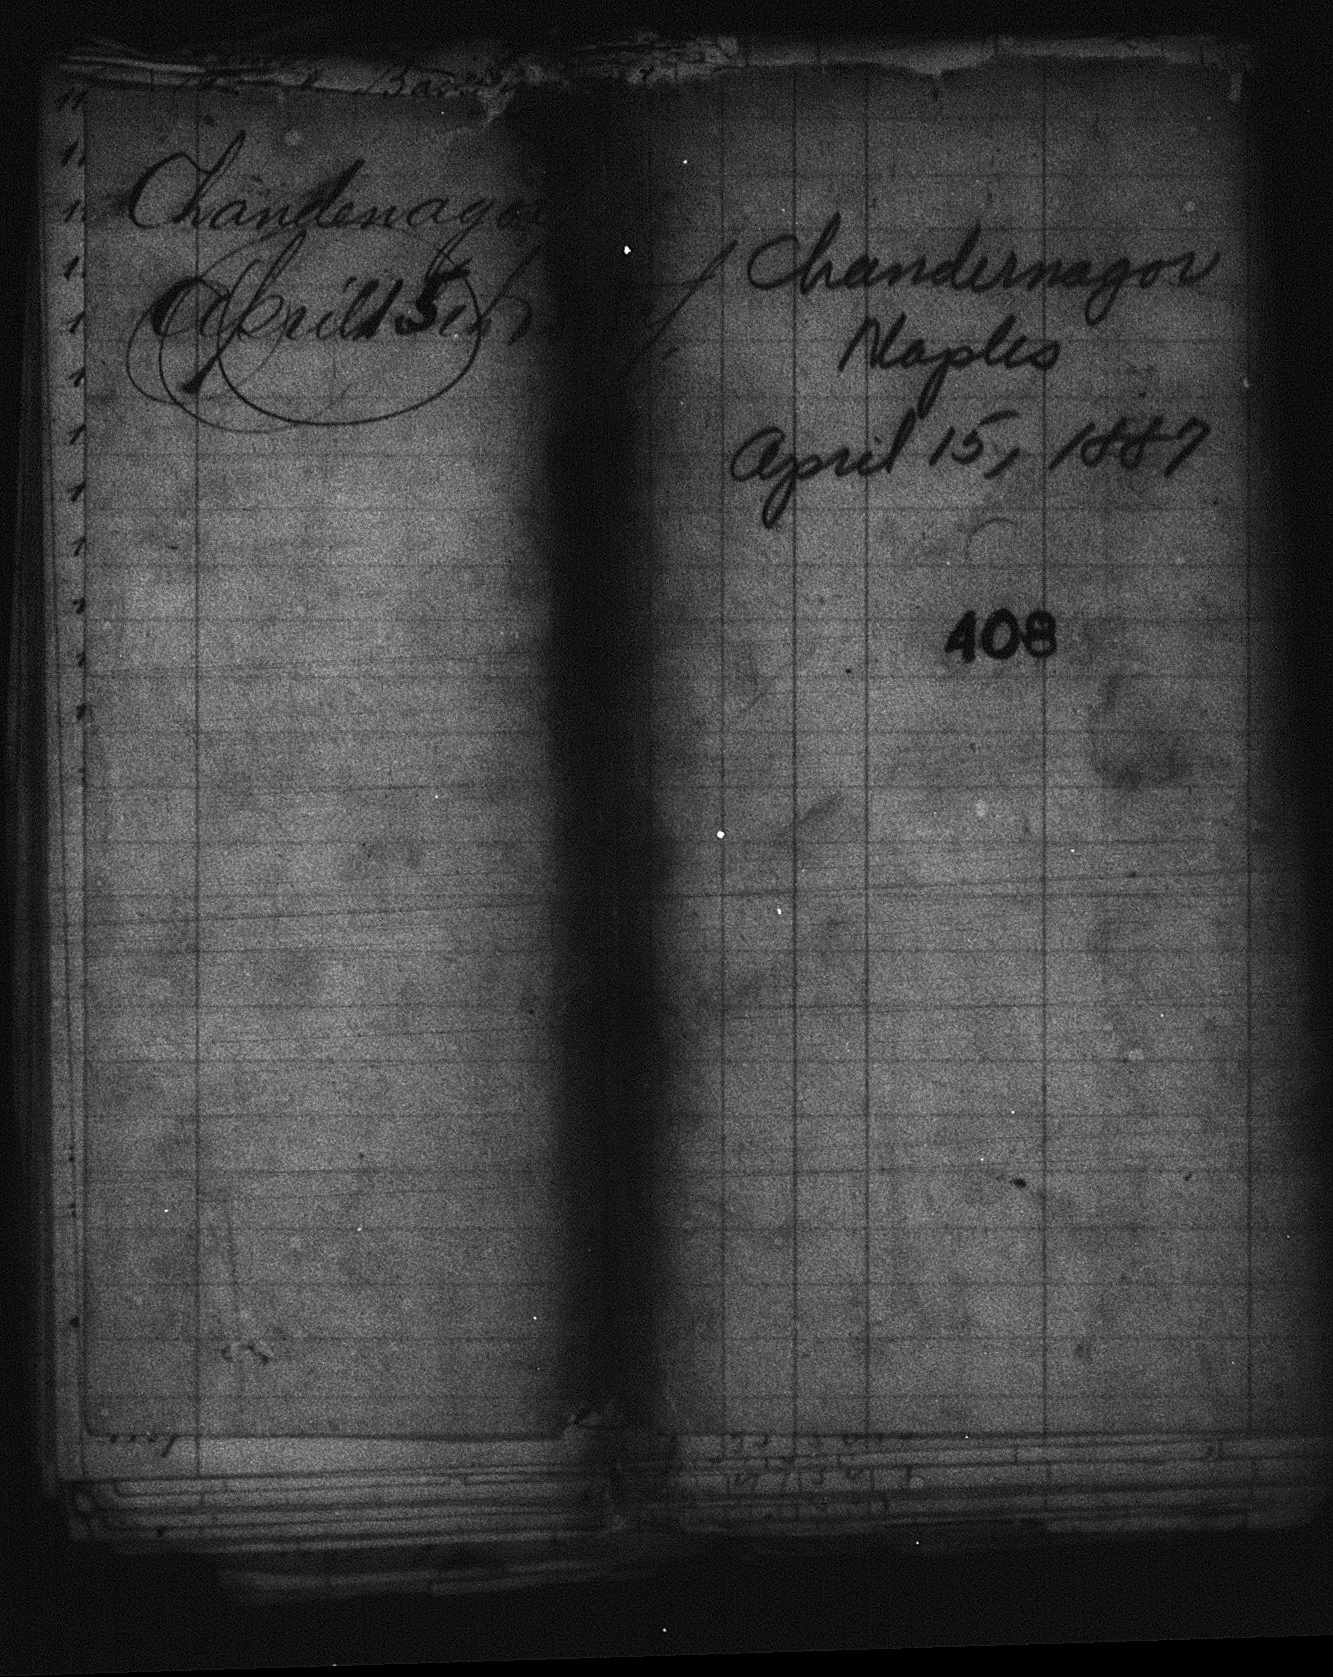 Chandenagor
April 15th
Chandernagor
Naples
April 15, 1887
408